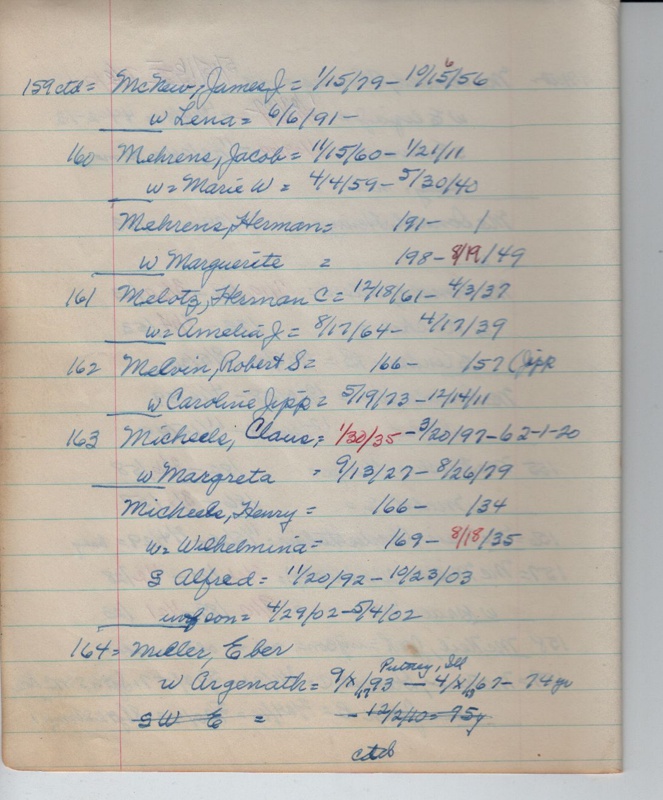 159 ctd = McNew, James J = 1/15/79 - 10/15/56
6
w Lena = 6/6/91 -
160 Mehrens, Jacob = 11/15/60 - 1/21/11
w = Marie W = 4/4/59 - 5/30/40
Mehrens, Herman = 191 - /
w Marguerite = 198 - 8/19/49
161 Melotz, Herman C = 12/18/61 - 4/3/37
w = Amelia J = 8/17/64 - 4/17/39
162 Melvin, Robert S = 166 - 157 (Jipp
w Caroline Jipp = 5/19/73 - 12/14/11
163 Micheels, Claus, = 1/30/35 - 3/20/97 - 62-1-20
w Margreta = 9/13/27 - 8/26/79
Micheels, Henry = 166 - 134
w = Wilhelmina = 169 - 8/18/35
S Alfred = 11/20/92 - 10/23/03
son = 4/29/02 - 5/4/02
164 = Miller, Eber
Putney, Ill
w Argenath = 9/x/93 - 4/x/67 - 74 yr
S W E = - 12/2/10 = 75y
ctd